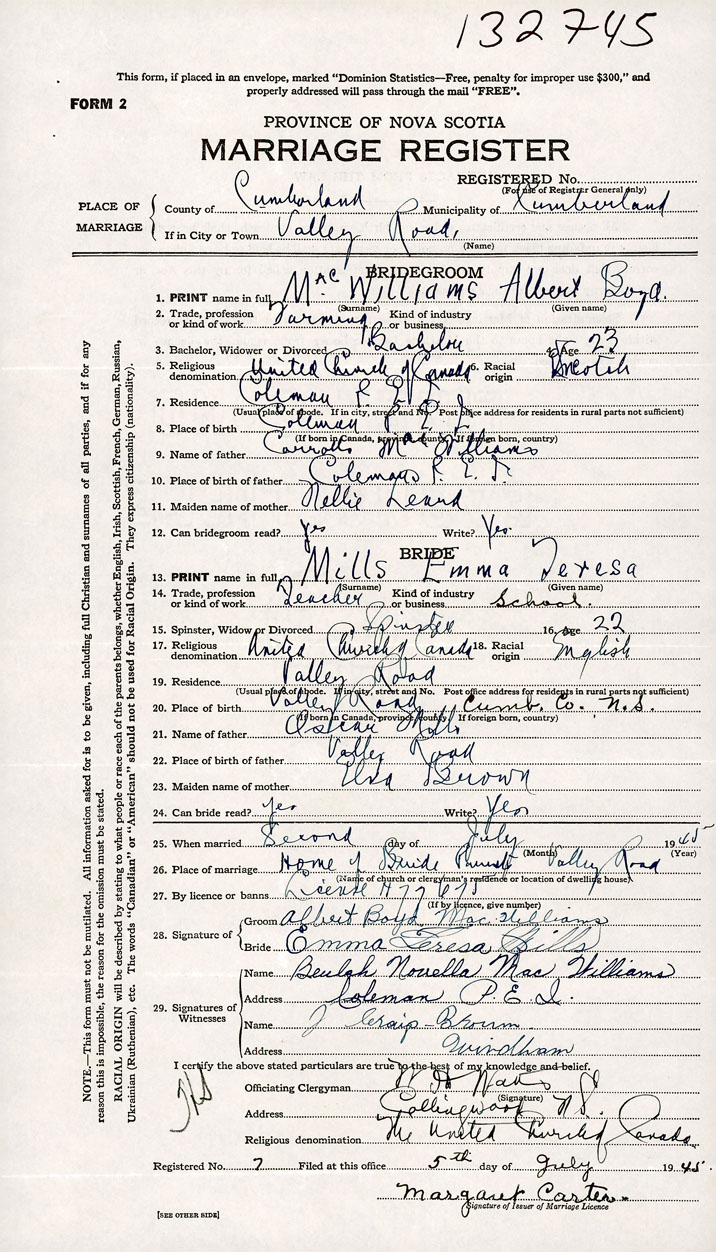 132745
This form, if placed in an envelope, marked “Dominion Statistics—Free, penalty for improper use $300,” and
properly addressed will pass through the mail “FREE”.
FORM 2
PROVINCE OF NOVA SCOTIA
MARRIAGE REGISTER
REGISTERED No.
(For use of Registrar General only)
PLACE OF MARRIAGE
County of Cumberland Municipality of Cumberland
If in City or Town Valley Road,
(Name)
BRIDEGROOM
1. PRINT name in full MacWilliams Albert Boyd.
(Surname) (Given name)
2. Trade, profession or kind of work Farming Kind of industry or business
3. Bachelor, Widower or Divorced Bachelor 4. Age 23
5. Religious denomination United Church of Canada 6. Racial origin Scotch
7. Residence Coleman P. E. I.
(Usual place of abode. If in city, street and No. Post office address for residents in rural parts not sufficient)
8. Place of birth Coleman P. E. I.
(If born in Canada, province, county. If foreign born, country)
9. Name of father MacWilliams
10. Place of birth of father Coleman P. E. I.
11. Maiden name of mother Nellie Leard
12. Can bridegroom read? yes Write? Yes.
BRIDE
13. PRINT name in full Mills Emma Teresa
(Surname) (Given name)
14. Trade, profession or kind of work Teacher Kind of industry or business School.
15. Spinster, Widow or Divorced Spinster 16. Age 22
17. Religious denomination United Church of Canada 18. Racial origin English
19. Residence Valley Road
(Usual place of abode. If in city, street and No. Post office address for residents in rural parts not sufficient)
20. Place of birth Valley Road Cumb. Co. N.S.
(If born in Canada, province, county. If foreign born, country)
21. Name of father Oscar Mills
22. Place of birth of father Valley Road
23. Maiden name of mother Brown
24. Can bride read? yes Write? Yes
25. When married Second day of July 1945
(Month) (Year)
26. Place of marriage Home of Bride Parents Valley Road
(Name of church or clergyman's residence or location of dwelling house)
27. By licence or banns License
(If by licence, give number)
28. Signature of
Groom Albert Boyd MacWilliams
Bride Emma Teresa Mills
29. Signatures of Witnesses
Name Beulah MacWilliams
Address Coleman P.E.I.
Name J Craig Brown
Address Windham
I certify the above stated particulars are true to the best of my knowledge and belief.
Officiating Clergyman W H
(Signature)
Address Collingwood N.S.
Religious denomination The United Church of Canada
Registered No. 7 Filed at this office 5th day of July 1945
Margaret Carter
Signature of Issuer of Marriage Licence
[SEE OTHER SIDE]
NOTE.—This form must not be mutilated. All information asked for is to be given, including full Christian and surnames of all parties, and if for any
reason this is impossible, the reason for the omission must be stated.
RACIAL ORIGIN will be described by stating to what people or race each of the parents belongs, whether English, Irish, Scottish, French, German, Russian,
Ukrainian (Ruthenian), etc. The words “Canadian” or “American” should not be used for Racial Origin. They express citizenship (nationality).